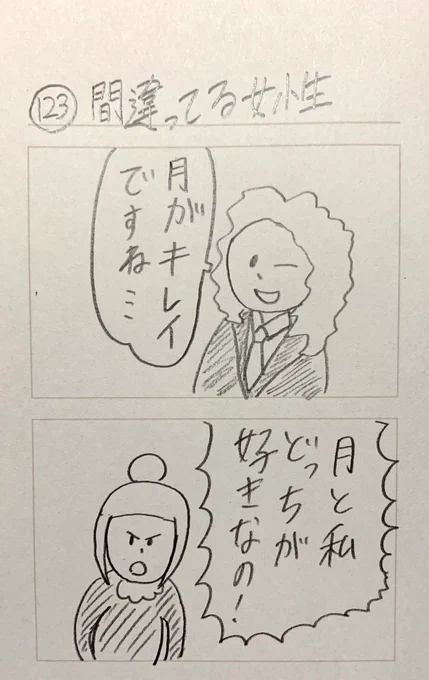 123 間違ってる女性
月がキレイ
ですね…
月と私
どっちが
好きなの！